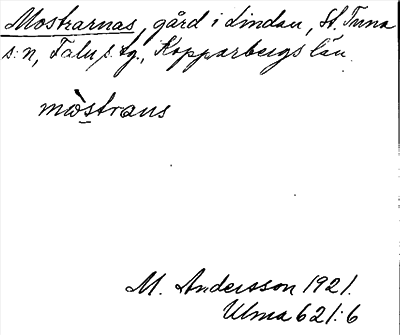 Mostrarnas, gård i Lindan, St. Tuna
s:n, Falu s. tg., Kopparbergs län.
mòstrans
M. Andersson 1921.
Ulma 621:6